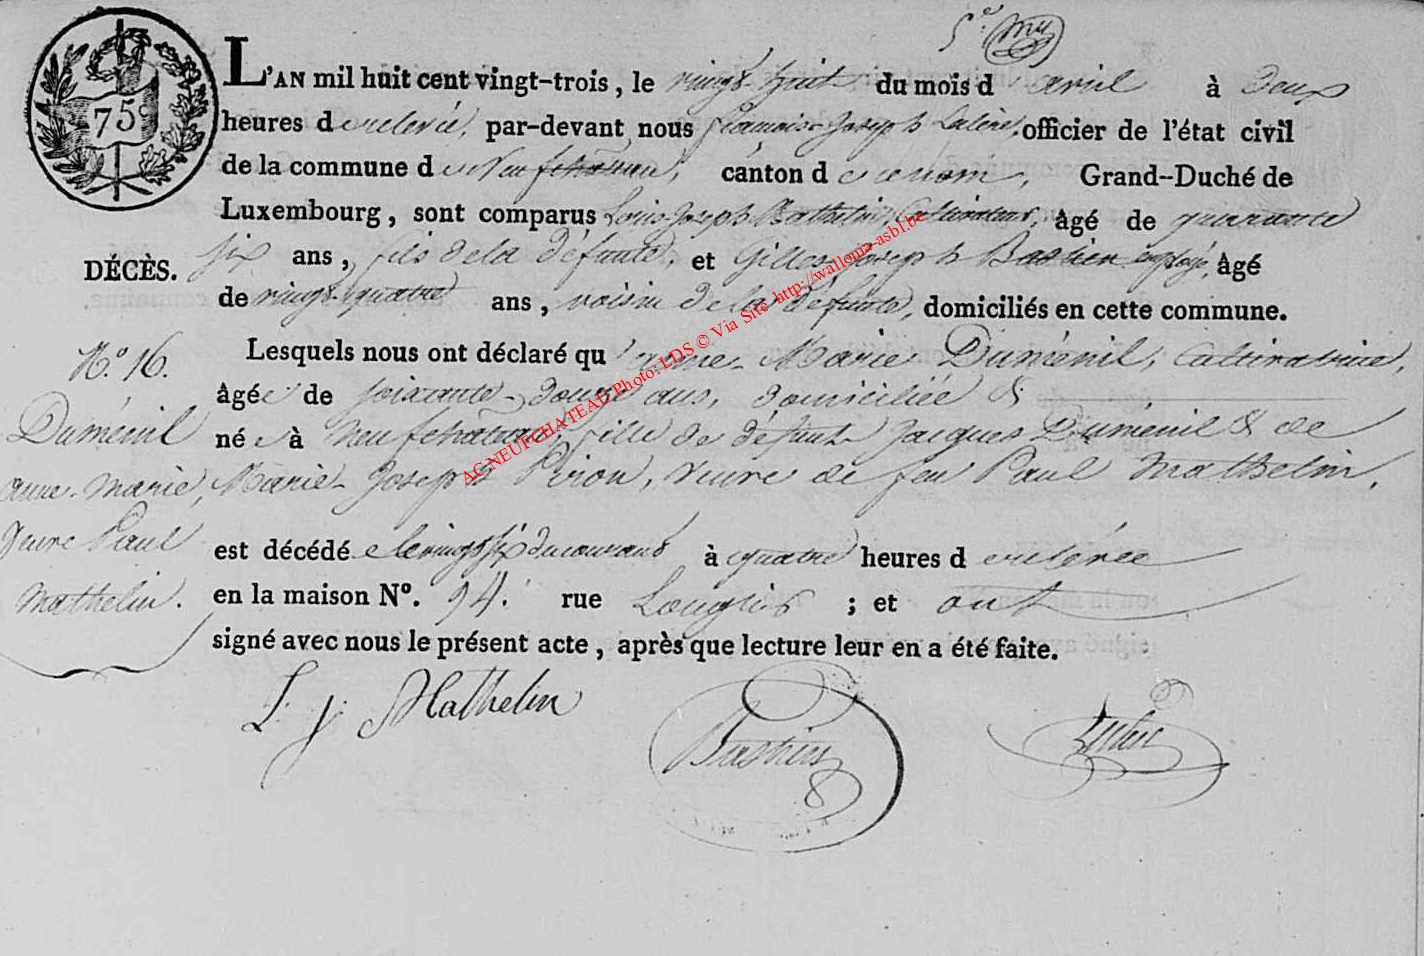 5e. my
75
L'AN mil huit cent vingt-trois, le vingt huit du mois d'avril à deux
heures de relevée, par-devant nous François Joseph officier de l'état civil
de la commune de Neufchâteau, canton de ce nom, Grand-Duché de
Luxembourg, sont comparus Louis Joseph Mathelin, Cultivateur, âgé de quarante
DÉCÈS.
six ans, fils de la défunte, et Gilles Joseph Bastien employé, âgé
de vingt quatre ans, voisin de la défunte, domiciliés en cette commune.
N.° 16.
Duménil
anne-marie,
veuve Paul
Mathelin.
Lesquels nous ont déclaré qu'anne-Marie Duménil, Cultivatrice,
âgée de soixante-douze ans, domiciliée &
née à Neufchâteau, fille de défunt Jacques Duménil & de
Marie-Joseph Piron, veuve de feu Paul Mathelin,
est décédée le vingt six du courant à quatre heures de relevée
en la maison N°. 94. rue ; et ont
signé avec nous le présent acte, après que lecture leur en a été faite.
L. j. Mathelin
Bastien
AG NEUFCHATEAU Photo: LDS © Via Site http://wallonia-asbl.be